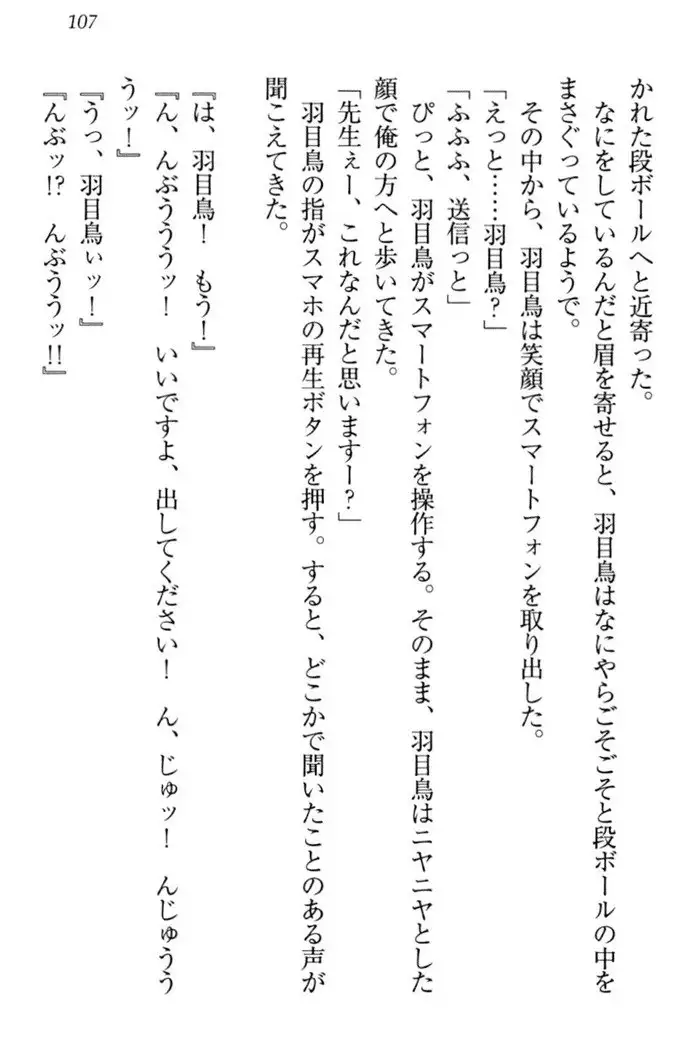 107
かれた段ボールへと近寄った。
　なにをしているんだと眉を寄せると、羽目鳥はなにやらごそごそと段ボールの中を
まさぐっているようで。
　その中から、羽目鳥は笑顔でスマートフォンを取り出した。
「えっと……羽目鳥？」
「ふふふ、送信っと」
　ぴっと、羽目鳥がスマートフォンを操作する。そのまま、羽目鳥はニヤニヤとした
顔で俺の方へと歩いてきた。
「先生ぇー、これなんだと思いますー？」
　羽目鳥の指がスマホの再生ボタンを押す。すると、どこかで聞いたことのある声が
聞こえてきた。
『は、羽目鳥！　もう！』
『ん、んぶうううッ！　いいですよ、出してください！　ん、じゅッ！　んじゅうう
うッ！』
『うっ、羽目鳥ぃッ！』
『んぶッ!?　んぶううッ!!』